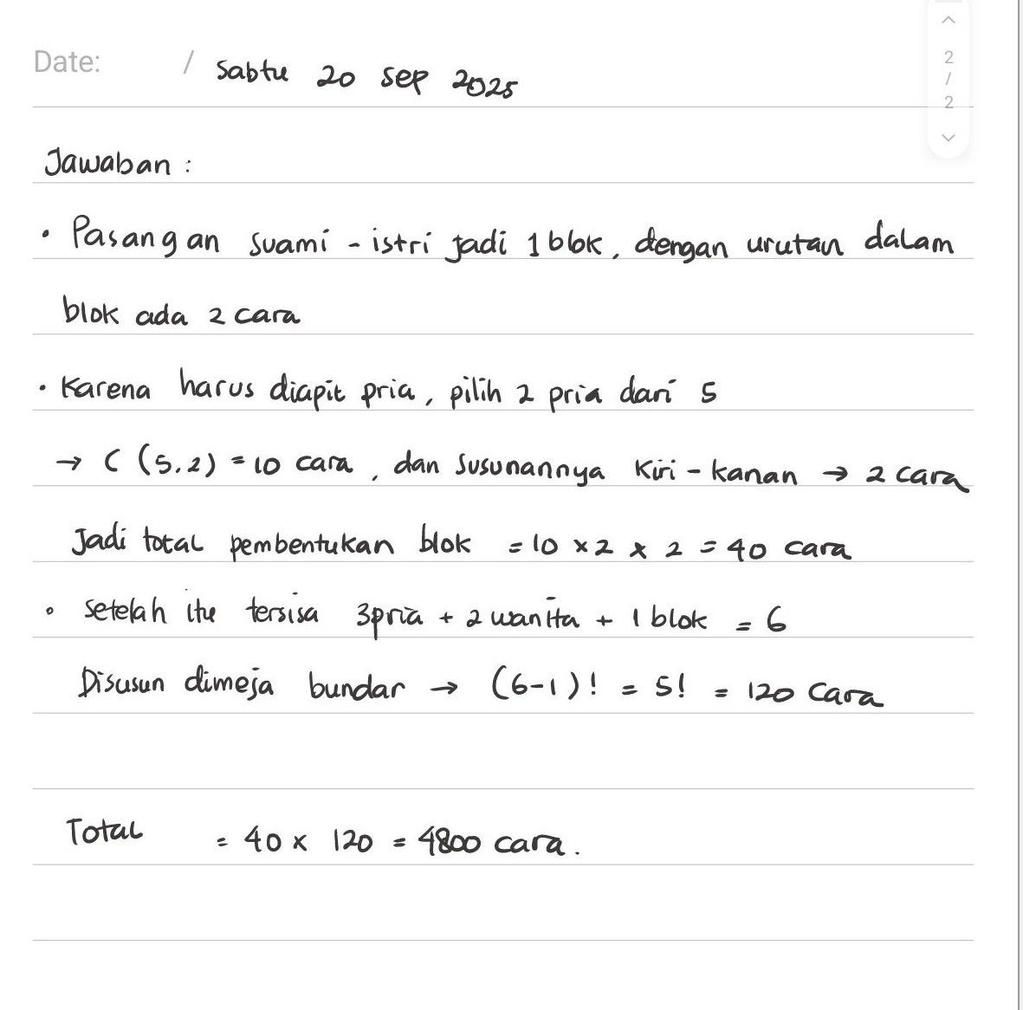 Date: / Sabtu 20 sep 2025
2
/
2
Jawaban :
• Pasangan suami - istri jadi 1 blok, dengan urutan dalam
blok ada 2 cara
• Karena harus diapit pria, pilih 2 pria dari 5
→ C (5,2) = 10 cara, dan Susunannya Kiri - kanan → 2 cara
Jadi total pembentukan blok = 10 × 2 × 2 = 40 cara
• Setelah itu tersisa 3 pria + 2 wanita + 1 blok = 6
Disusun dimeja bundar → (6-1)! = 5! = 120 Cara
Total = 40 × 120 = 4800 cara.